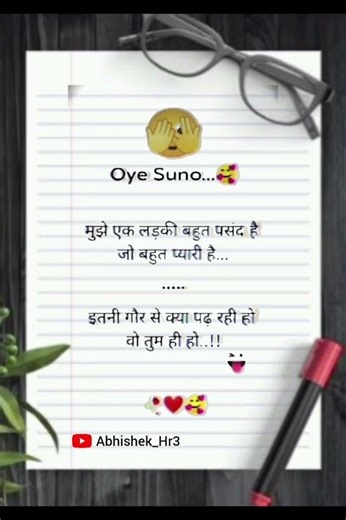 Oye Suno...🥰
मुझे एक लड़की बहुत पसंद है
जो बहुत प्यारी है...
.....
इतनी गौर से क्या पढ़ रही हो
वो तुम ही हो..!!
Abhishek_Hr3